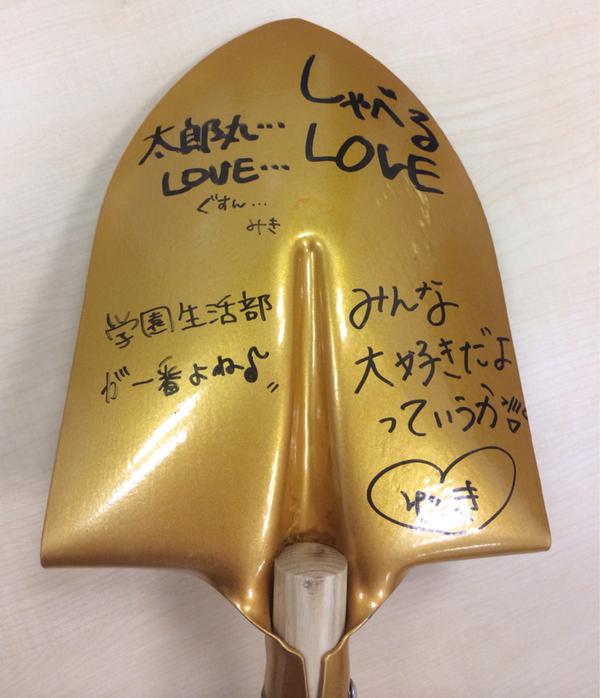 しゃべる
LOVE
太郎丸…
LOVE…
ぐすん…
みき
学園生活部
が一番よね♪
みんな
大好きだよ
っていうか